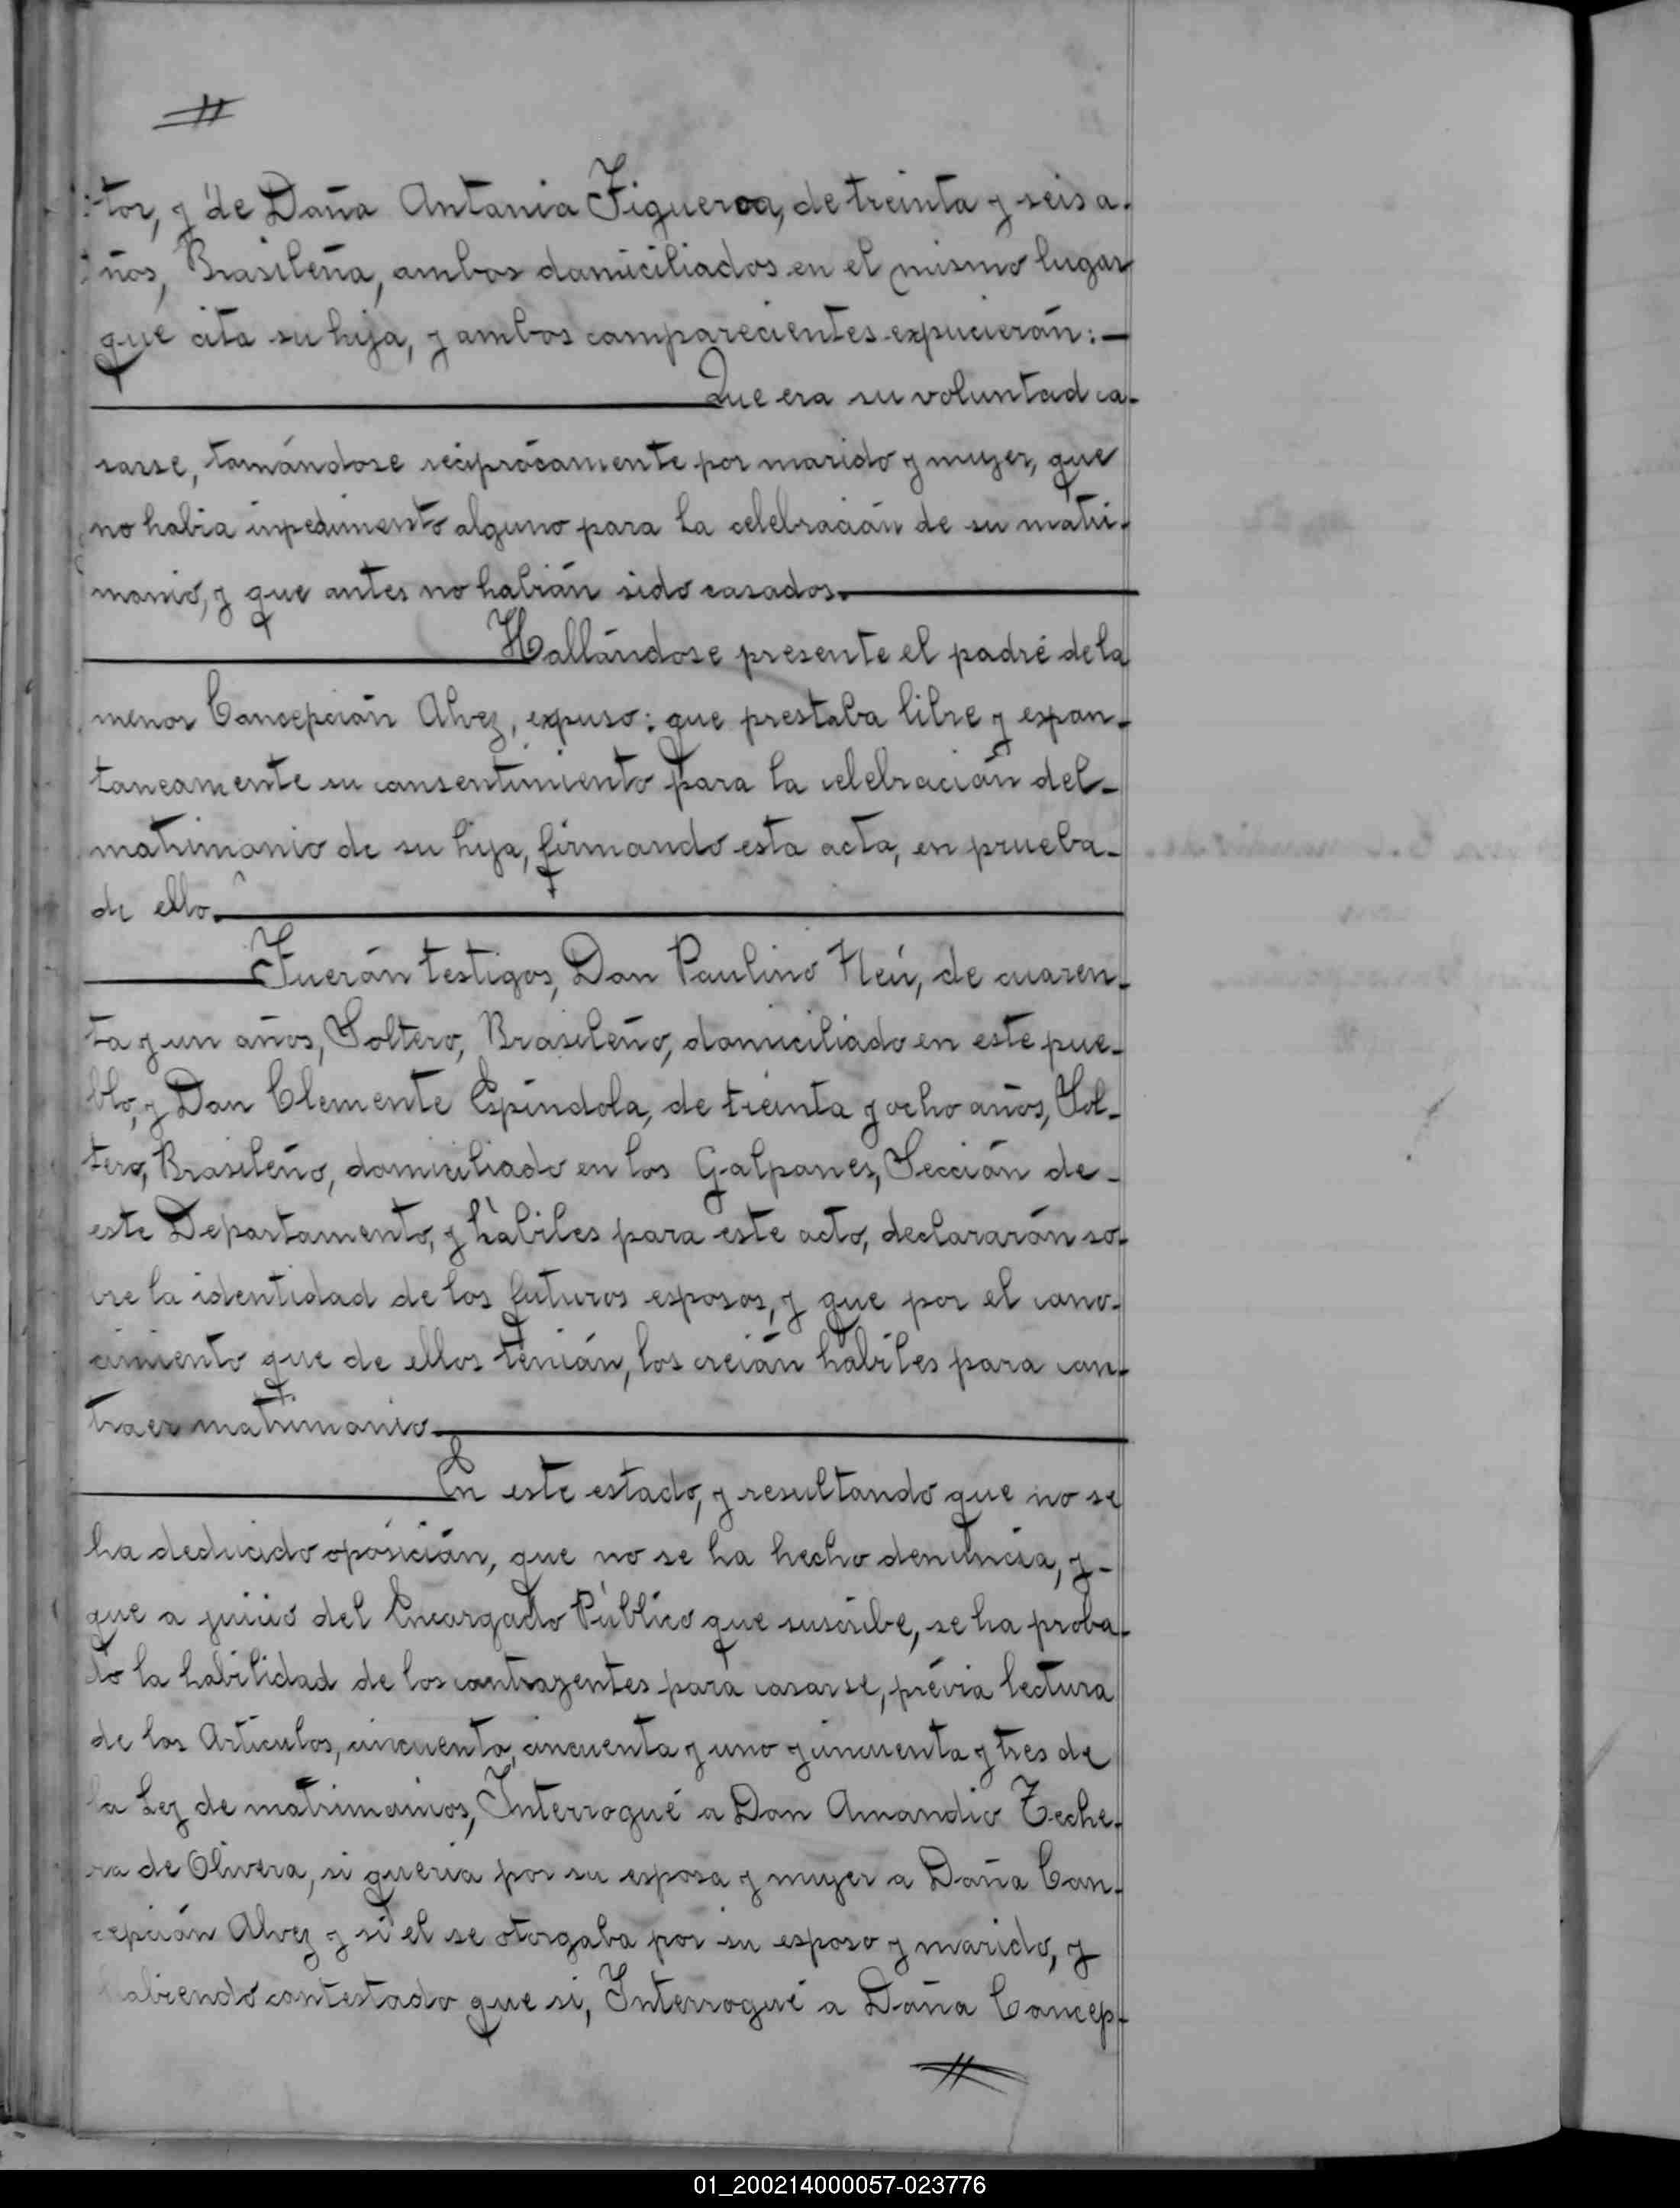 tor, y de Doña Antonia Figueroa, de treinta y seis a-
ños, Brasileña, ambos domiciliados en el mismo lugar
que cita su hija, y ambos comparecientes expucierón: —
Que era su voluntad ca-
sarse, tomándose reciprócamente por marido y mujer, que
no habia inpedimento alguno para la celebración de su matri-
monio, y que antes no habián sido casados.
Hallándose presente el padre de la
menor Concepción Alvez, expuso: que prestaba libre y espon-
taneamente su consentimiento para la celebración del-
matrimonio de su hija, firmando esta acta, en prueba-
de ello.
Fuerón testigos, Don Paulino Neú, de cuaren-
ta y un años, Soltero, Brasileño, domiciliado en este pue-
blo, y Don Clemente Espíndola, de treinta y ocho años, Sol-
tero, Brasileño, domiciliado en los Galpones, Sección de-
este Departamento, y hàbiles para este acto, declararón so-
bre la identidad de los futuros esposos, y que por el cono-
cimiento que de ellos tenián, los creián hábiles para con-
traer matrimonio
En este estado, y resultando que no se
ha deducido oposición, que no se ha hecho denúncia, y-
que a juicio del Encargado Pùblico que suscribe, se ha proba-
do la habilidad de los contrayentes para casarse, prévia lectura
de los Artículos, cincuenta, cincuenta y uno y cincuenta y tres de
la Ley de matrimonios, Interrogué a Don Amandio Teche-
ra de Olivera, si queria por su esposa y mujer a Doña Con-
cepción Alvez y si el se otorgaba por su esposo y marido, y
habiendo contestado que si, Interrogué a Doña Concep-
01_200214000057-023776